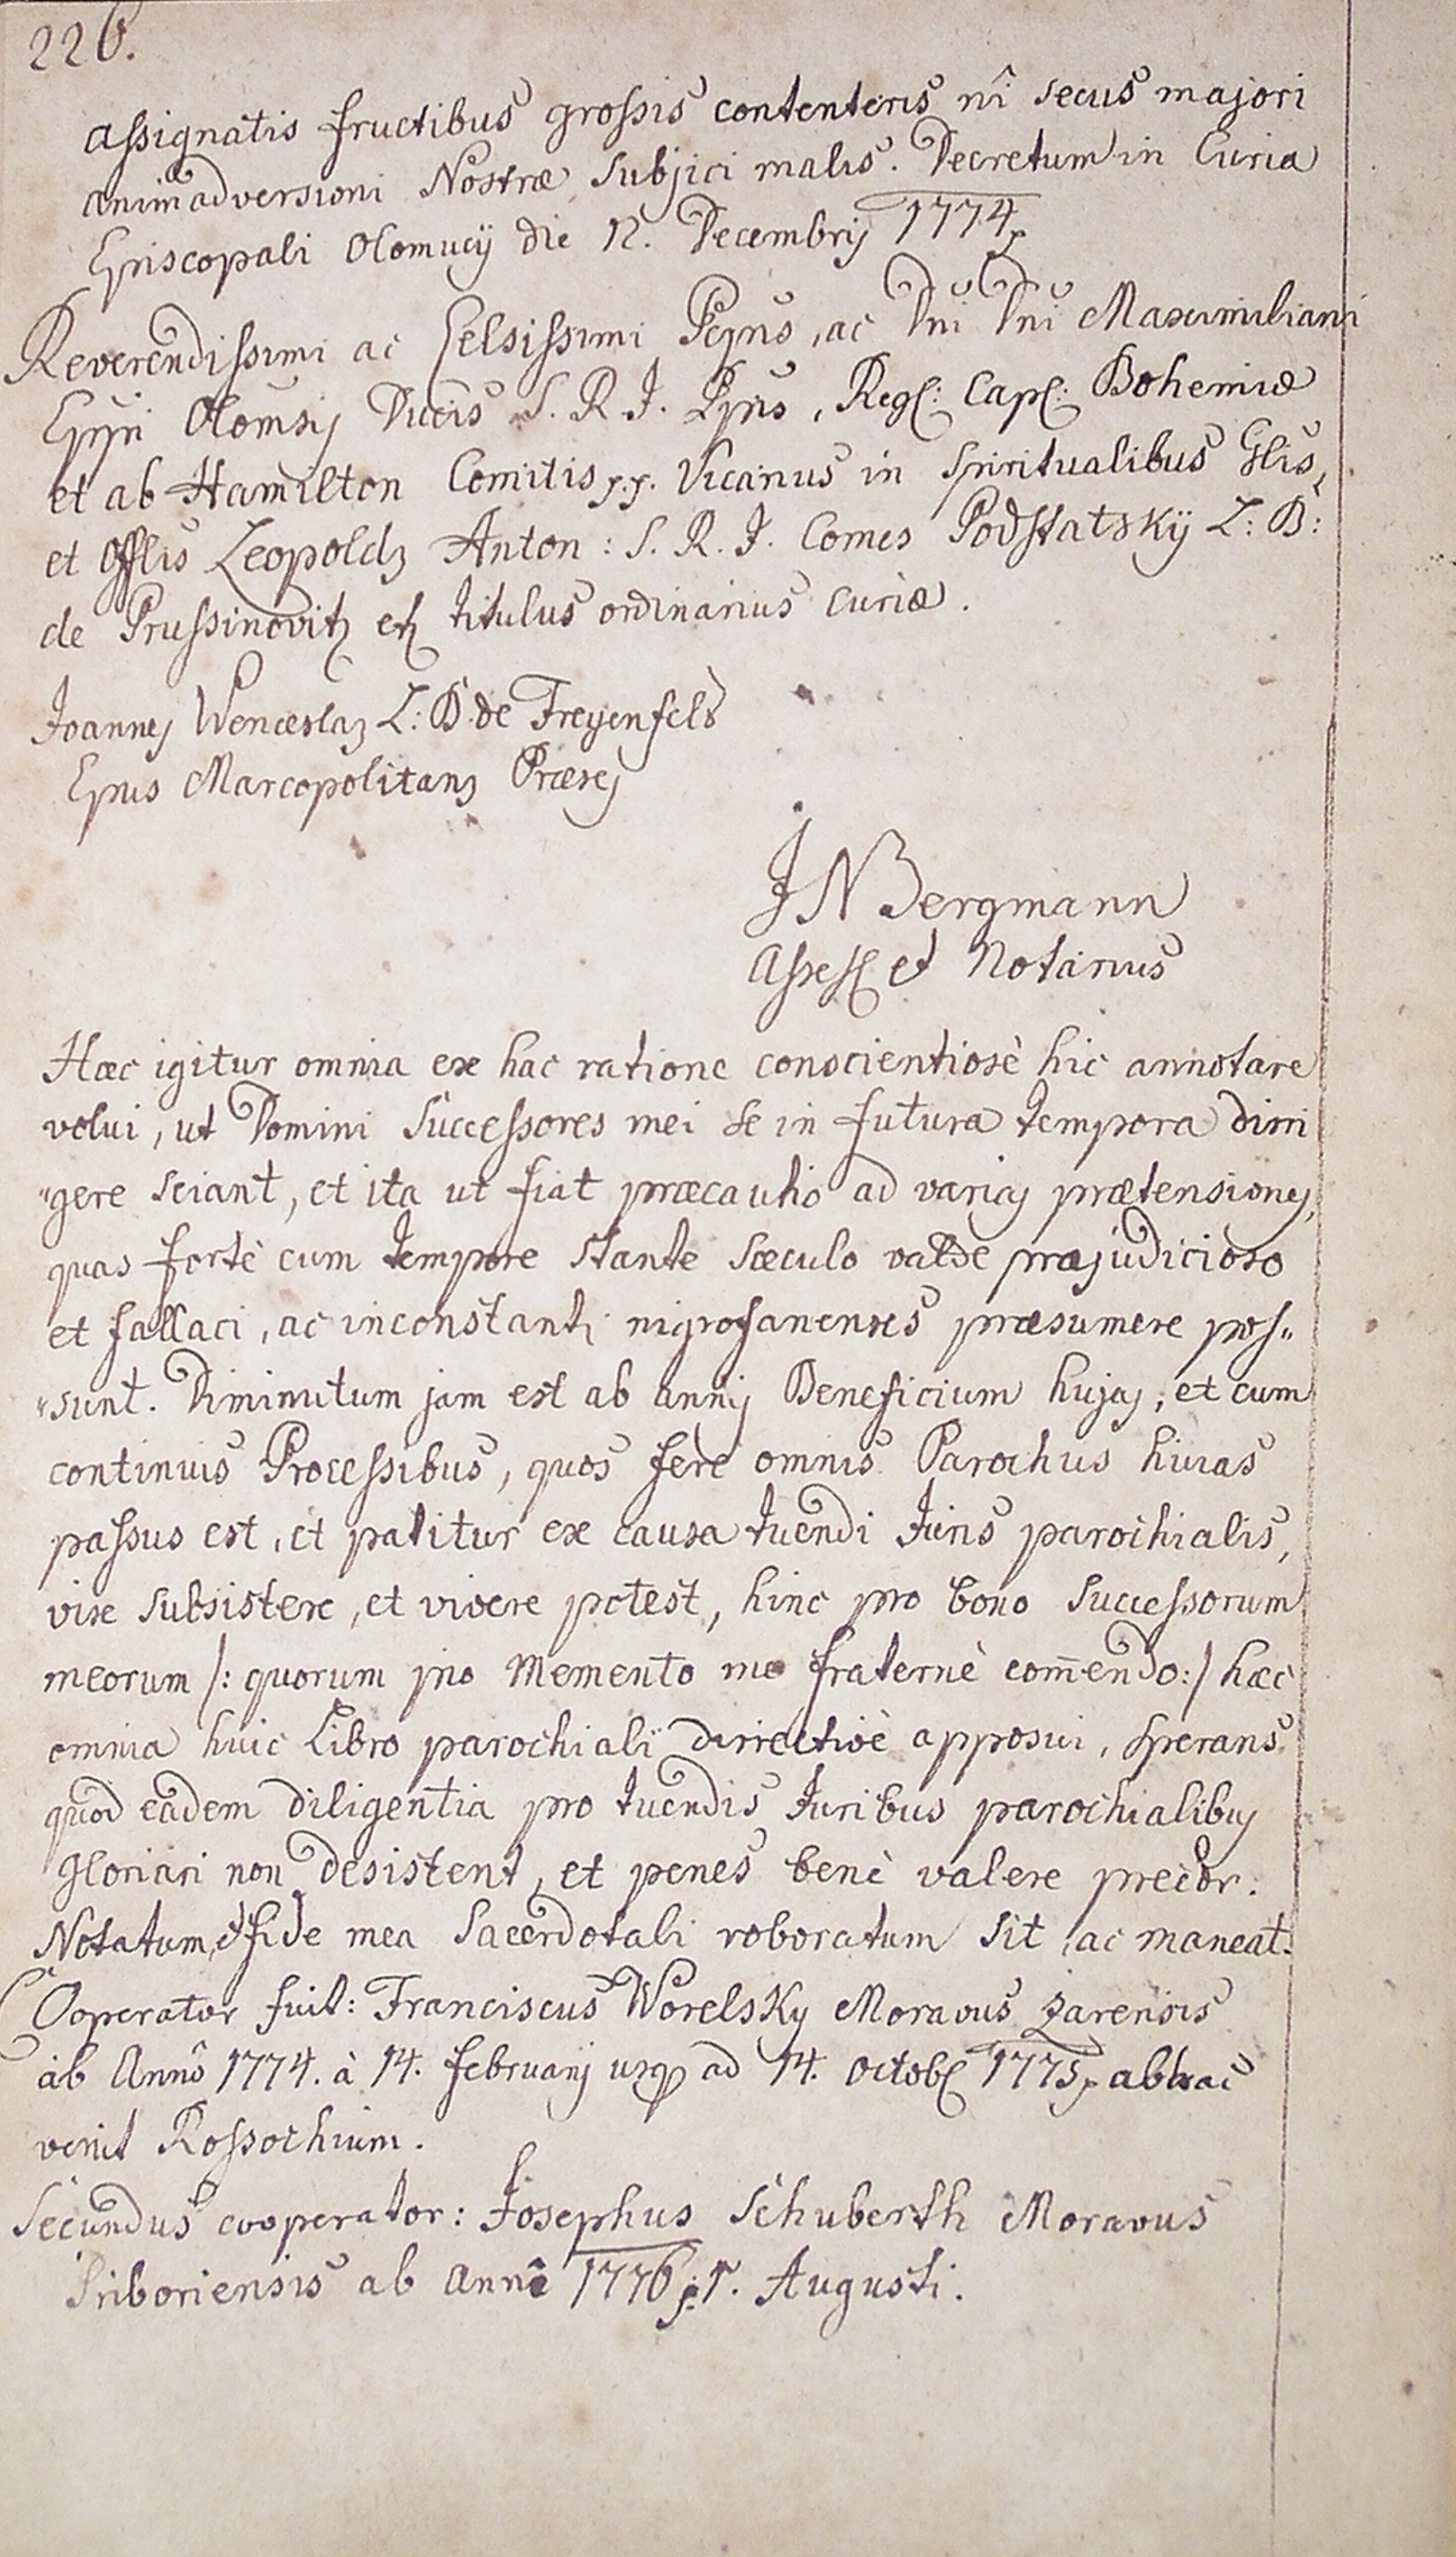 226.
assignatis fructibus grossis contenteris nî secus majori
animadversioni Nostræ subjici malis. Decretum in Curia
Episcopali Olomucij die 12. Decembrij 1774
Reverendissimi ac Celsissimi Pcpns, ac Dni Dni Maximiliani
Eppi Olomsij Ducis S. R. I. Ppns, Regę: Capę: Bohemiæ
et ab Hamilton Comitis p.p. Vicarius in Spiritualibus Glis,
et Offlis Leopoldg Anton: S. R. I. Comes Podstatskÿ L: B:
de Prussinovitz etę titulus ordinarius Curiæ.
Joannes Wenceslag L: B. de Freyenfels
Epus Marcopolitang Præses
J N Bergmann
Assesę et Notarius
Hæc igitur omnia ex hac ratione conscientiosè hic annotare
volui, ut Domini Successores mei se in futura tempora diri
"gere sciant, et ita ut fiat præcautio ad varias prætensiones,
quas fortè cum tempore stante sæculo valde præjudicioso
et fallaci, ac inconstanti nigrofanenses præsumere pos"
"sunt. Diminutum jam est ab annis Beneficium hujas, et cum
continuis Processibus, quos ferè omnis Parochus huias
passus est, et patitur ex causa tuendi Juris parochialis,
vix subsistere, et vivere potest, hinc pro bono Successorum
meorum /: quorum pro Memento me fraternè com̄endo:/ hæc
omnia huic Libro parochiali dirrectivè apposui, sperans
quod eadem diligentia pro tuendis Juribus parochialibus
gloriari non desistent, et penes benè valere precor.
Notatum, et fide mea Sacerdotali roboratum sit, ac maneat.
Cooperator fuit: Franciscus Worelsky Moravus Zarensis
ab Annô 1774. à 14. februarij usq ad 14. octobę 1775 abhac
venit Rossochium.
Secundus cooperator: Josephus Schuberth Moravus
Priboriensis ab Annô 1776 1. Augusti.